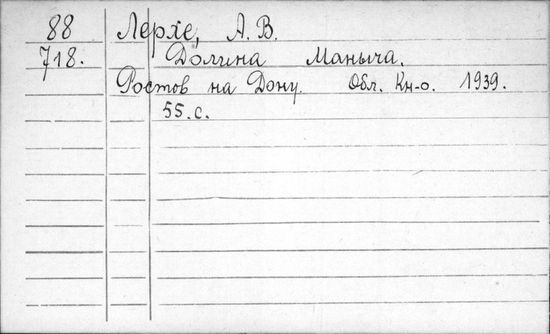 88 Лерхе, А. В.
718. Долина Маныча.
Ростов на Дону. Обл. Кн-о. 1939.
55. с.